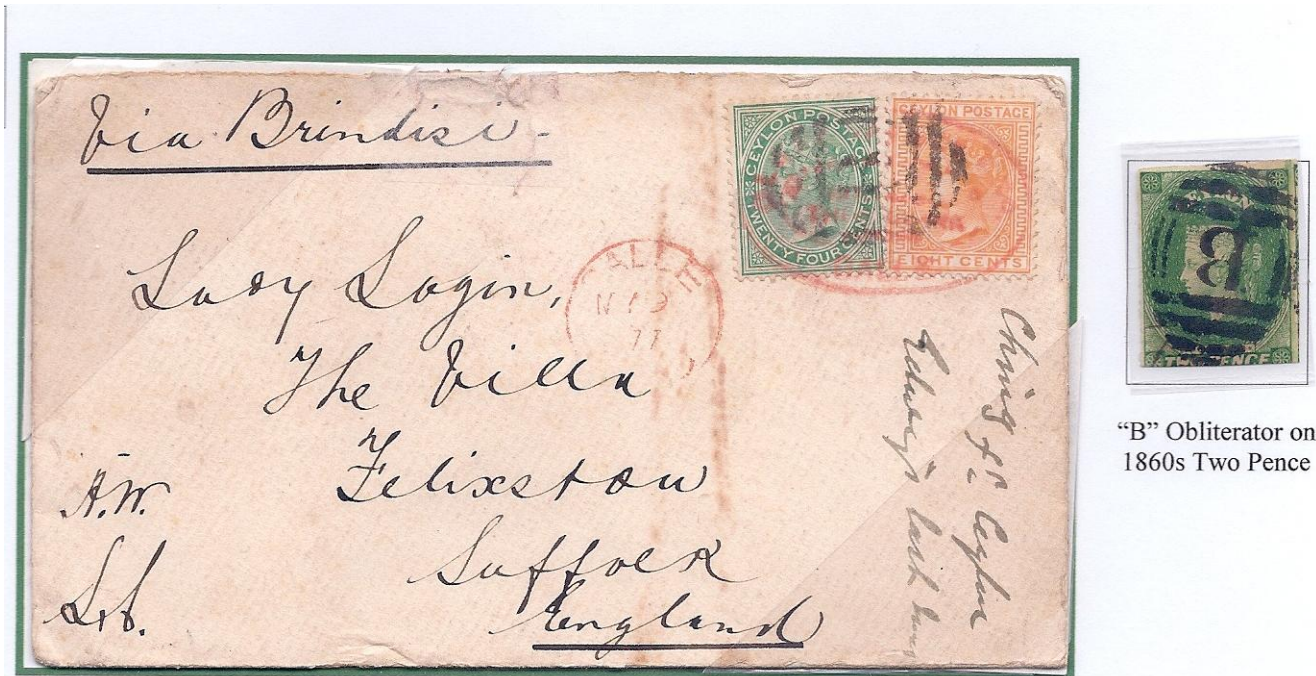 Via Brindisi -
CEYLON POSTAGE
TWENTY FOUR CENTS
CEYLON POSTAGE
EIGHT CENTS
GALLE
77
Lady Login,
The Villa
Felixstow
Suffolk
England
A.W.
Chmig fr Ceylon
last
B
PENCE
“B” Obliterator on
1860s Two Pence